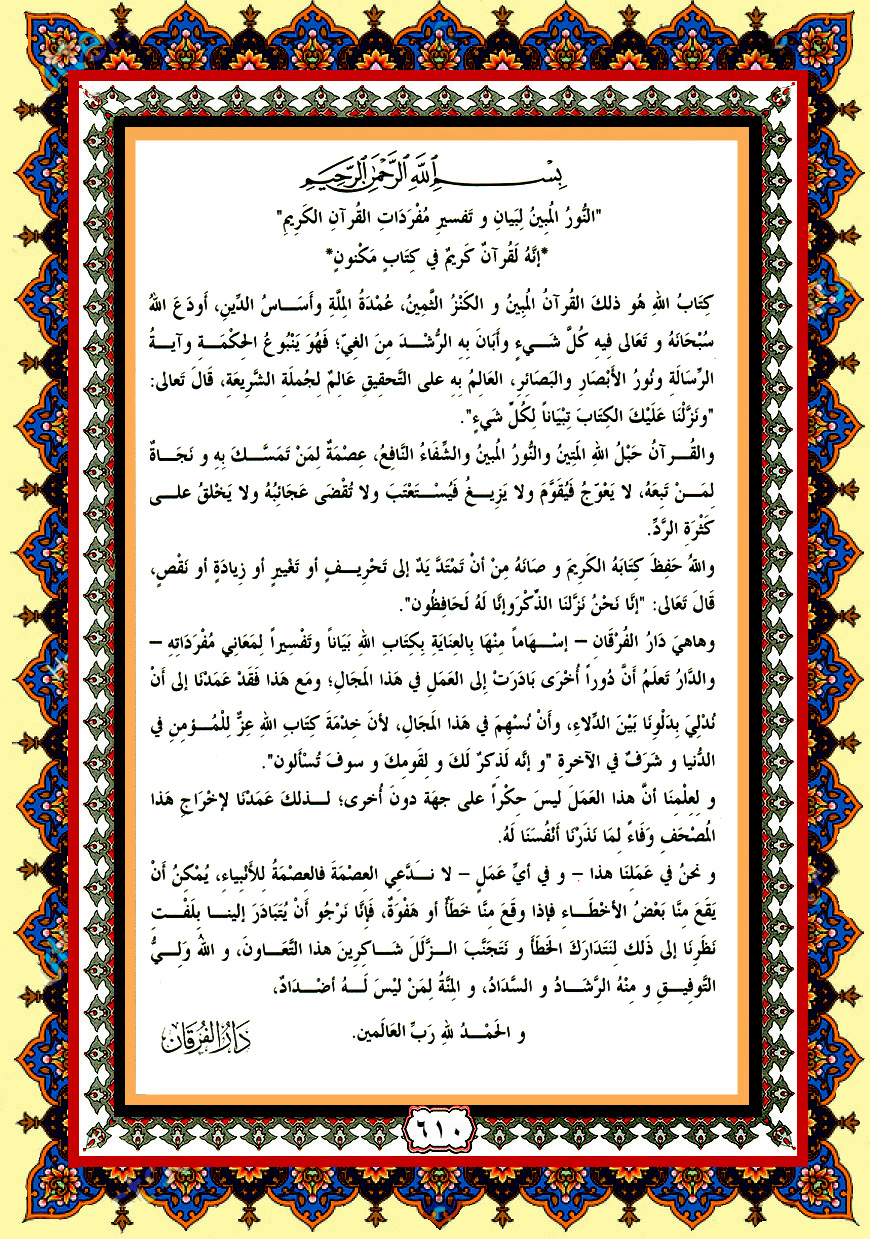 بِسْمِ ٱللَّهِ ٱلرَّحْمَٰنِ ٱلرَّحِيمِ
"النُّورُ المُبِينُ لِبَيَانِ و تَفسيرِ مُفْرَدَاتِ القُرآنِ الكَرِيمِ"
*إنَّهُ لَقُرآنٌ كَرِيمٌ في كِتَابٍ مَكْنونٍ*
كِتَابُ اللهِ هُو ذلكَ القُرآنُ المُبِينُ و الكَنْزُ الثَّمِينُ، عُمْدَةُ المِلَّةِ وأَسَاسُ الدِّينِ، أَودَعَ اللهُ
سُبْحَانَهُ و تَعَالى فيهِ كُلَّ شَيءٍ وأَبَانَ بِهِ الرُّشْدَ منَ الغيِّ؛ فَهُوَ يَنْبُوعُ الحِكْمَةِ وآيةُ
الرِّسَالَةِ ونُورُ الأَبْصَارِ والبَصَائِرِ، العَالِمُ بِهِ على التَّحقِيقِ عَالِمٌ لِجُملَةِ الشَّرِيعَةِ، قَالَ تَعالى:
"ونَزَّلْنَا عَلَيْكَ الكِتَابَ تِبْيَاناً لِكُلِّ شَيءٍ".
والقُرآنُ حَبْلُ اللهِ المَتِينُ والنُّورُ المبينُ والشِّفَاءُ النَّافِعُ، عِصْمَةٌ لِمَنْ تَمَسَّكَ بِهِ و نَجَاةٌ
لِمَنْ تَبِعَهُ، لا يَعْوَجّ فَيُقَوَّمَ ولا يَزِيغُ فَيُسْتَعْتَبَ ولا تُقْضَى عَجَائِبُهُ ولا يَخْلقُ على
كَثْرَةِ الرَّدِّ.
واللهُ حَفِظَ كِتَابَهُ الكَرِيمَ و صَانَهُ مِنْ أنْ تَمْتَدَّ يَدٌ إلى تَحْرِيفٍ أو تَغْييرٍ أو زِيادَةٍ أو نَقْصٍ،
قَالَ تَعَالى: "إنَّا نَحْنُ نَزَّلنَا الذِّكْرَوإنَّا لَهُ لَحَافِظُون".
وهاهيَ دَارُ الفُرْقَانِ – إسْهَاماً مِنْهَا بِالعِنَايَةِ بِكِتَابِ اللهِ بَيَاناً وتَفْسِيراً لِمَعَانِي مُفْرَدَاتِهِ –
والدَّارُ تَعلَمُ أَنَّ دُوراً أُخْرَى بَادَرَتْ إلى العَمَلِ في هَذا المَجَالِ؛ ومَع هَذا فَقَدْ عَمَدْنَا إلى أنْ
نُدْلِيَ بِدَلْوِنَا بَيْنَ الدِّلاءِ، وأَنْ نُسْهِمَ في هَذا المَجَالِ، لأنَ خِدْمَةَ كِتَابِ اللهِ عِزٌّ لِلْمُؤمِنِ في
الدُّنيا و شَرَفٌ في الآخرةِ "و إنَّه لَذِكرٌ لَكَ و لِقَومِكَ و سوفَ تُسْألون".
و لِعِلْمِنَا أنَّ هذا العَمَلَ ليسَ حِكْراً على جهَة دونَ أُخرى؛ لذلكَ عَمَدْنَا لإخْرَاجِ هَذا
المُصْحَفِ وَفَاءً لِما نَذَرْنَا أَنْفُسَنَا لَهُ.
و نحنُ في عَمَلِنَا هذا – و في أيِّ عَمَلٍ – لا نَدَّعي العِصْمَةَ فالعِصْمَةُ لِلأَنْبياءِ، يُمْكِنُ أَنْ
يَقَعَ مِنَّا بَعْضُ الأخْطَاءِ فإذا وقَعَ مِنَّا خَطَأٌ أو هَفْوَةٌ، فَإنَّا نَرْجُو أَنْ يُتَبَادَرَ إلينا بِلَفْتِ
نَظَرِنَا إلى ذَلك لِنَتَدَارَكَ الخَطَأَ و نَتَجَنَّبَ الزَّلَلَ شَاكِرِينَ هذا التَّعَاونَ، و اللهُ وَلِيُّ
التَّوفِيقِ و مِنْهُ الرَّشَادُ و السَّدَادُ، و المِنَّةُ لِمَنْ ليْسَ لَهُ أضْدَادٌ،
و الحَمْدُ للهِ رَبِّ العَالَمين.
دَارُ الفُرقَان
٦١٠